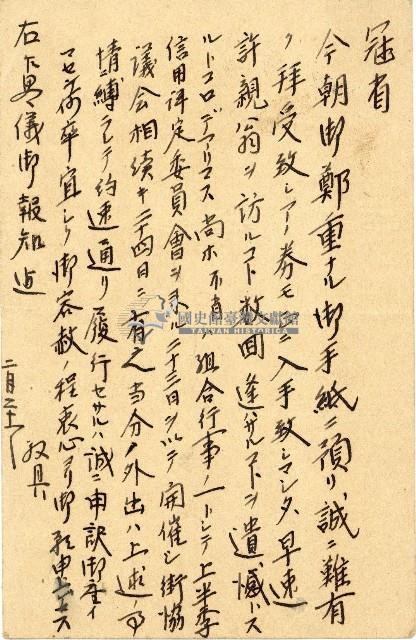 冠省
今朝御鄭重ナル御手紙ニ預リ、誠ニ難有
ク拝受致シマシタ 券モ 入手致シマシタ、早速
許親翁ヲ訪ルコト数回 逢ハサルコトヲ遺憾トス
ルトコロデアリマス 尚ホ不肖 組合行事ノ一トシテ上半季
信用評定委員會ヲ 二十三日ヲ以テ開催シ街協
議会相続キ二十四日ニ有之 当分ノ外出ハ上述ノ
情ニ縛ラレテ約束通リ履行セサルハ誠ニ申訳御座イ
マセン 何卒宜シク御容赦ノ程衷心ヨリ御願申上マス
右不具儀御報知迄
二月二十一日 敬具
國史館臺灣文獻館
TAIWAN HISTORICA